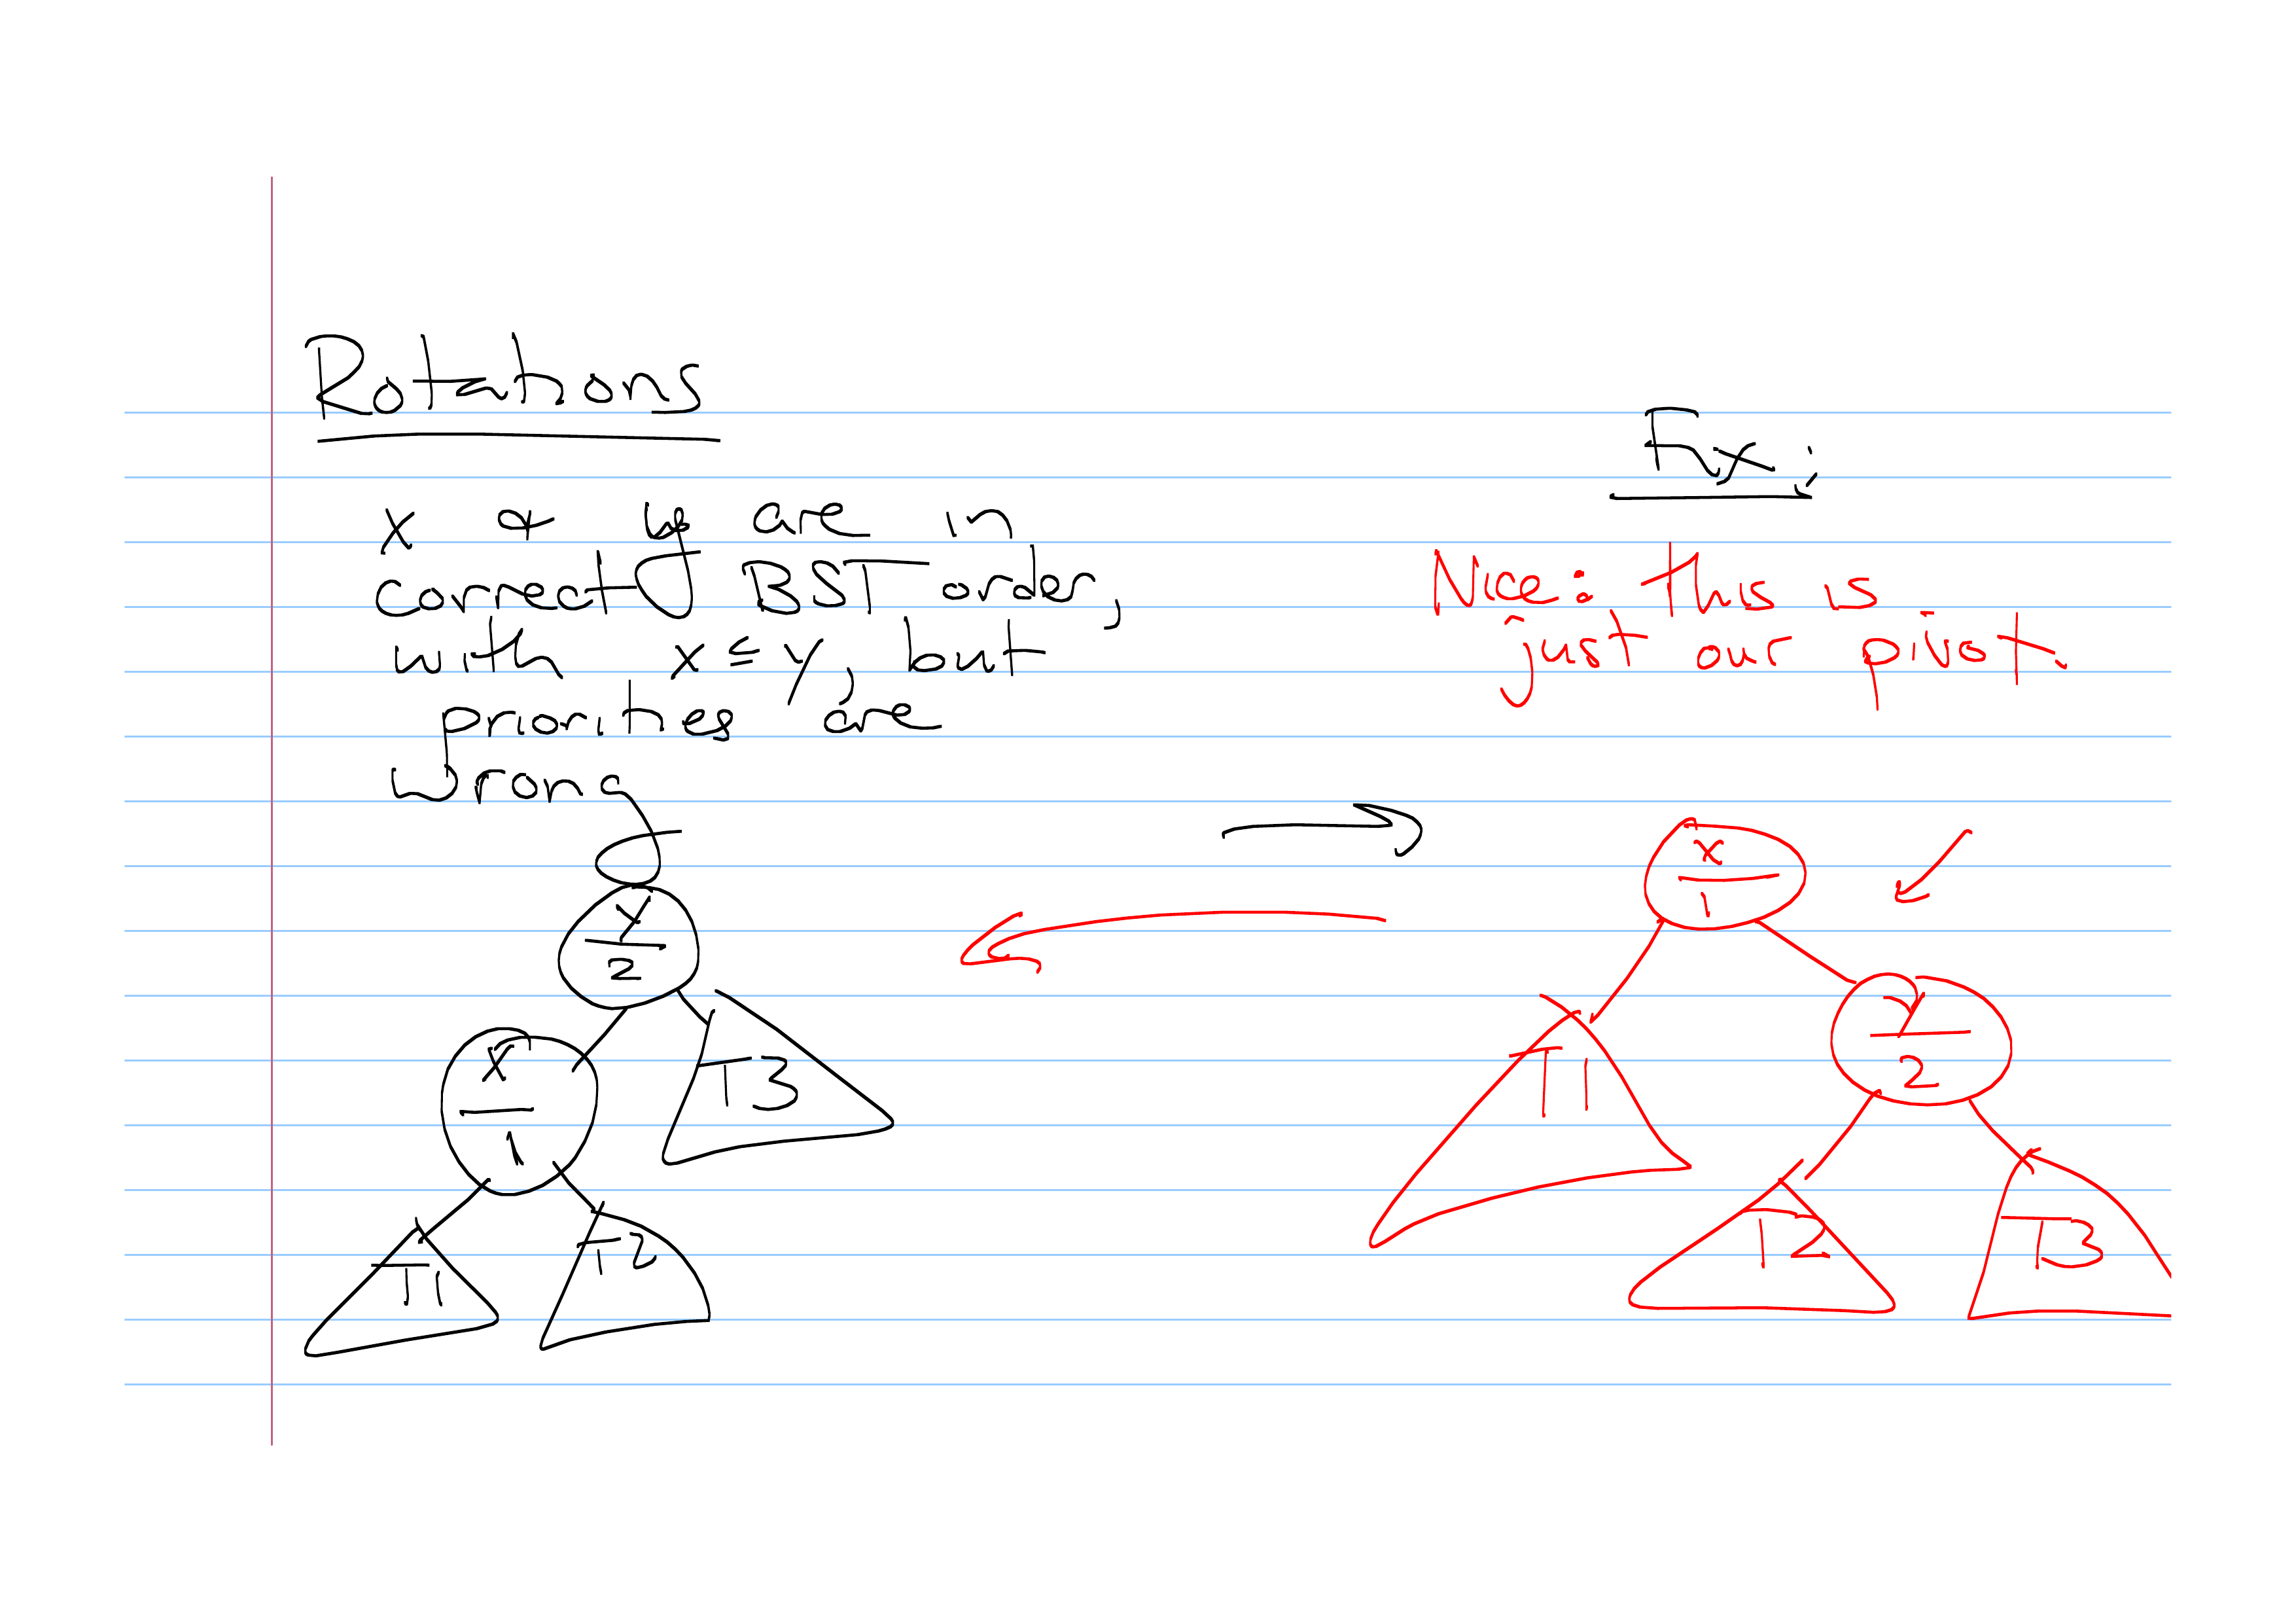 Rotations
x & y are in
correct BST order,
with x ≤ y, but
priorities are
wrong
Y
2
X
1
T3
T1
T2
Fix:
Nice: this is
just our pivot.
x
1
Y
2
T1
T2
T3